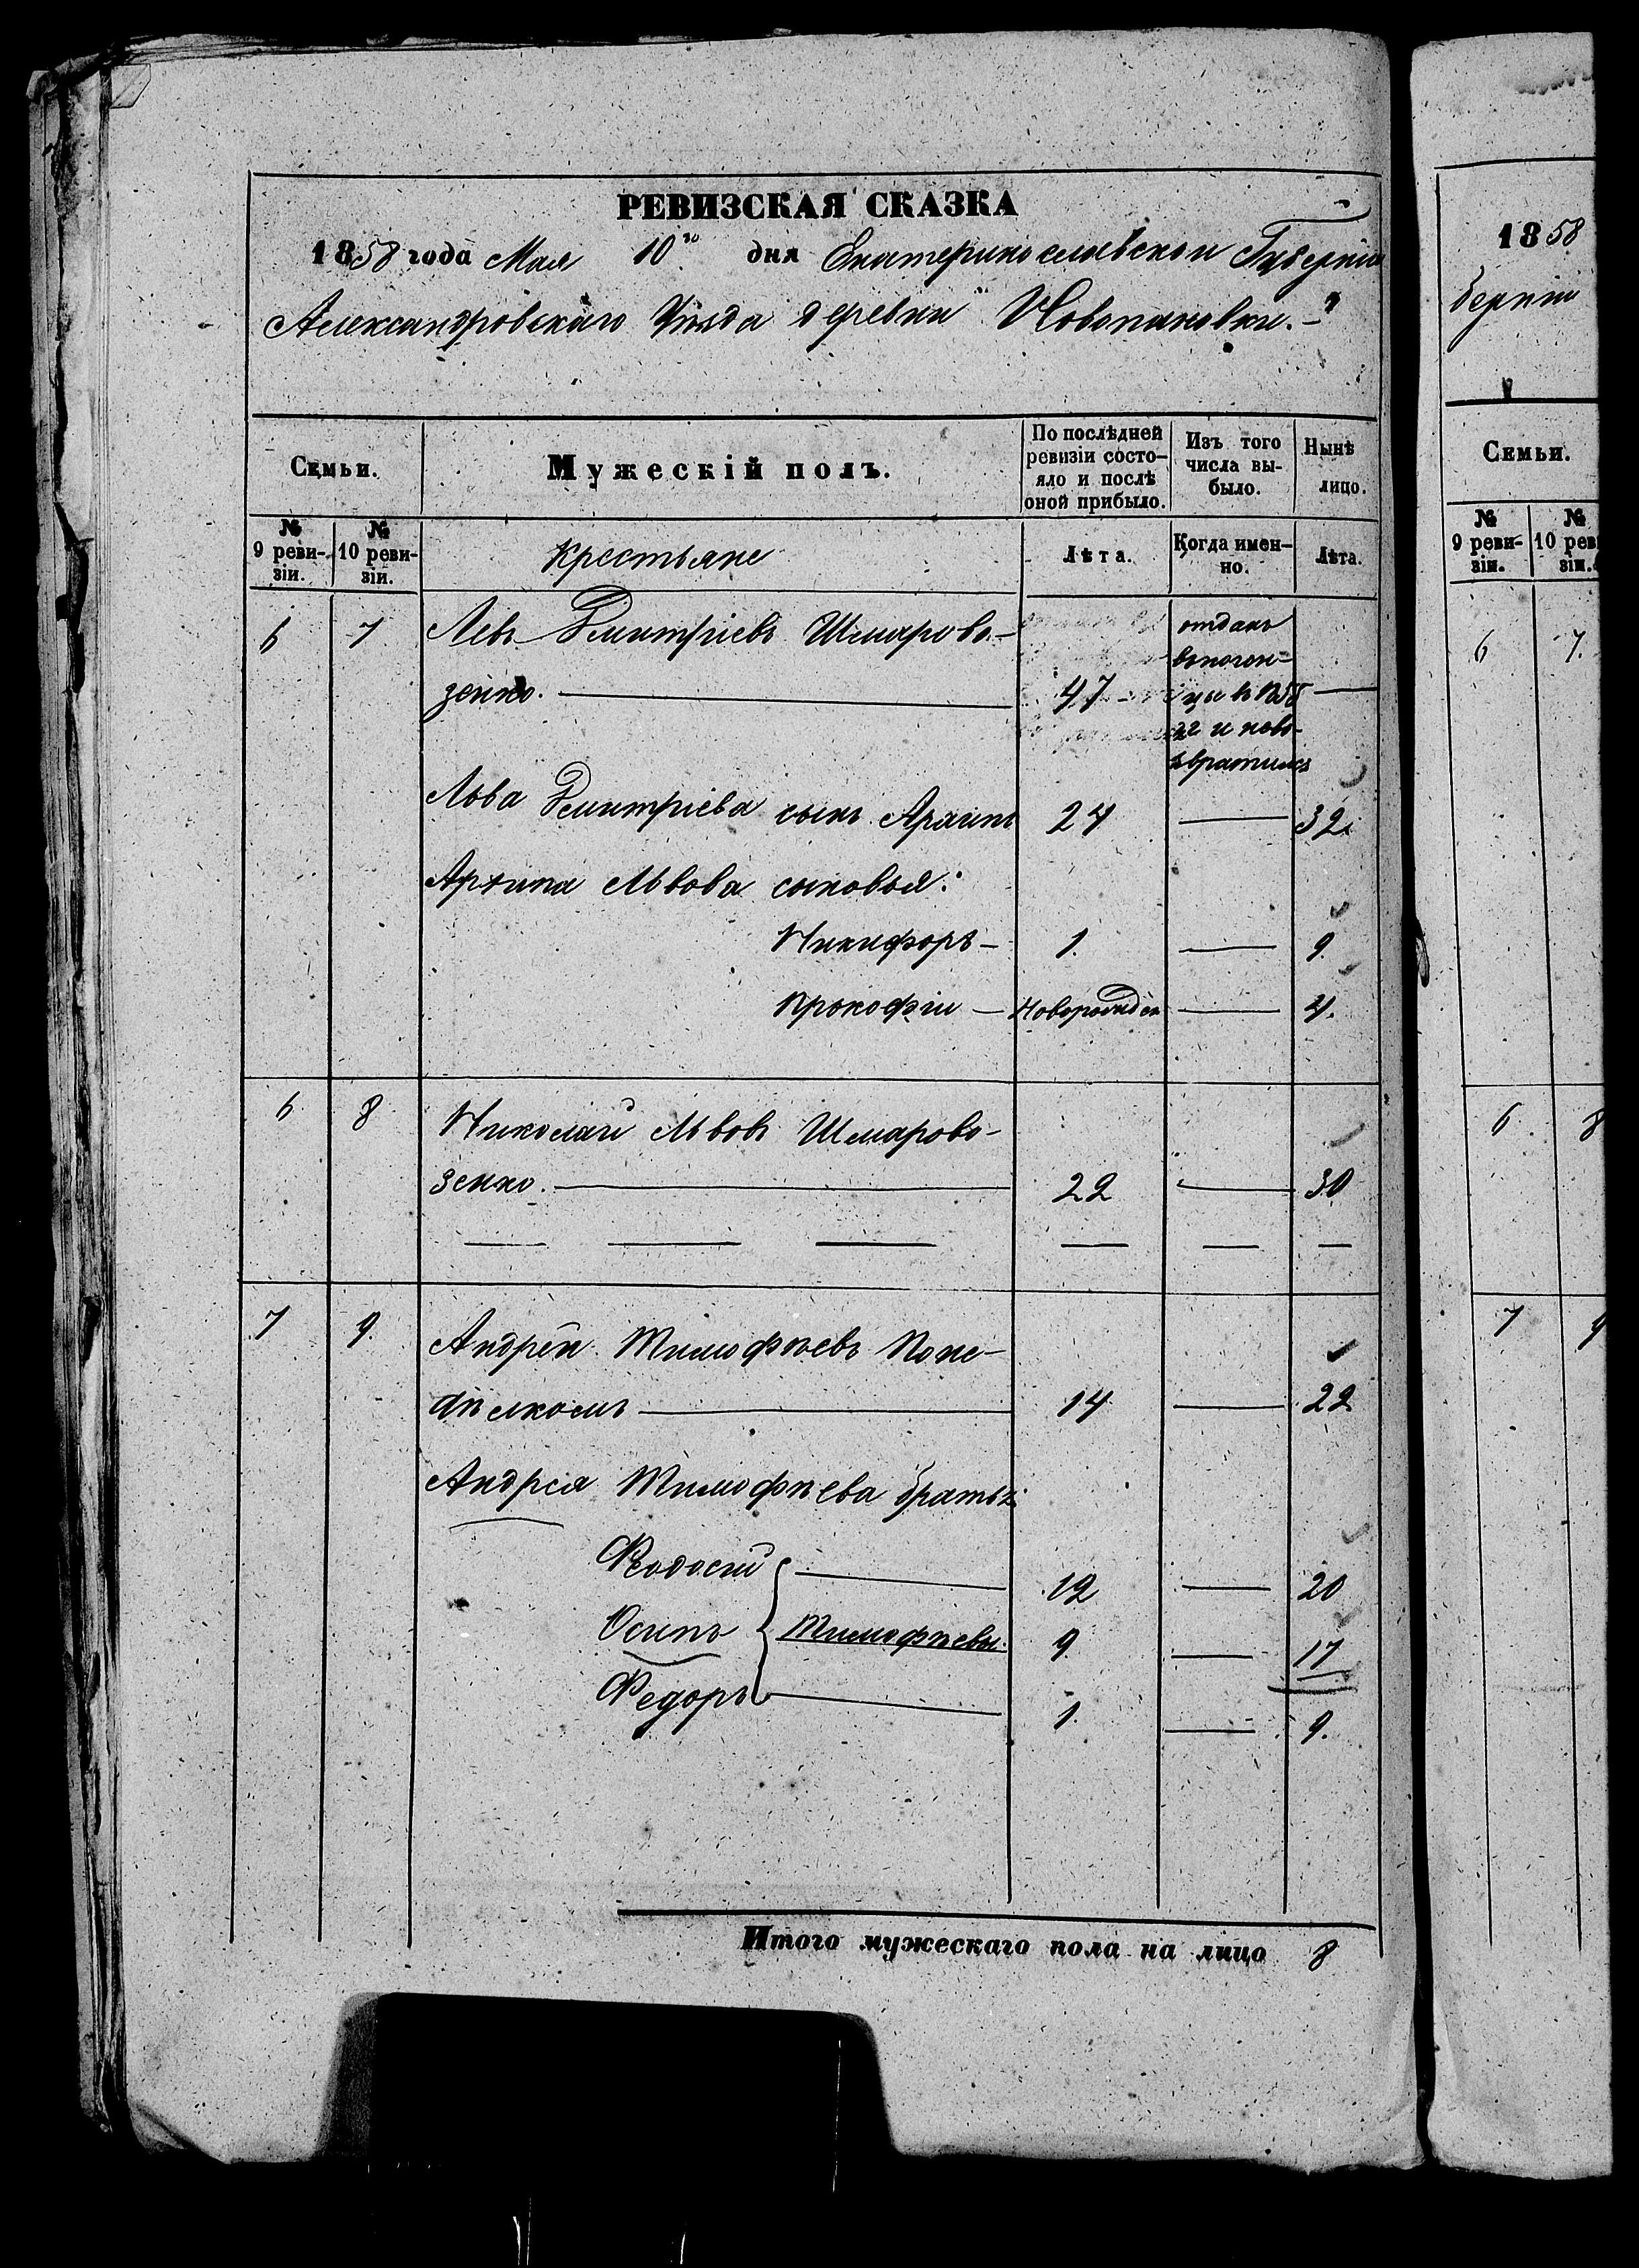 РЕВИЗСКАЯ СКАЗКА
1858 года Мая 10го дня Екатеринославской Губерніи
Александровскаго Уѣзда деревни Новопановки.
Семьи.
Мужескій полъ.
По послѣдней ревизіи состо-
яло и послѣ оной прибыло.
Изъ того числа вы-
было.
Нынѣ лицо.
№ 9 реви-
зіи.
№ 10 реви-
зіи.
Крестьяне
Лѣта.
Когда имен-
но.
Лѣта.
6 7 Левъ Дмитріевъ Шмарово-
зенко. 47
отданъ
въ
и нево-
звратился
Льва Дмитріева сынъ Архипъ 24 — 32.
Архипа Львова сыновья:
Никифоръ — 1. — 9.
Прокофій — Новорожден — 4.
6 8 Николай Львовъ Шмарово-
зенко. 22 — 30
7 9. Андрей Тимофѣевъ Поне-
14 — 22
Андрея Тимофѣева братья:
Феодосій 12 — 20
Осипъ Тимофѣевы. 9 — 17
Федоръ 1. — 9.
Итого мужескаго пола на лицо 8
1858
берніи
Семьи.
№ 9 реви-
зіи.
№ 10 рев
зіи.
6 7.
6 8
7 9